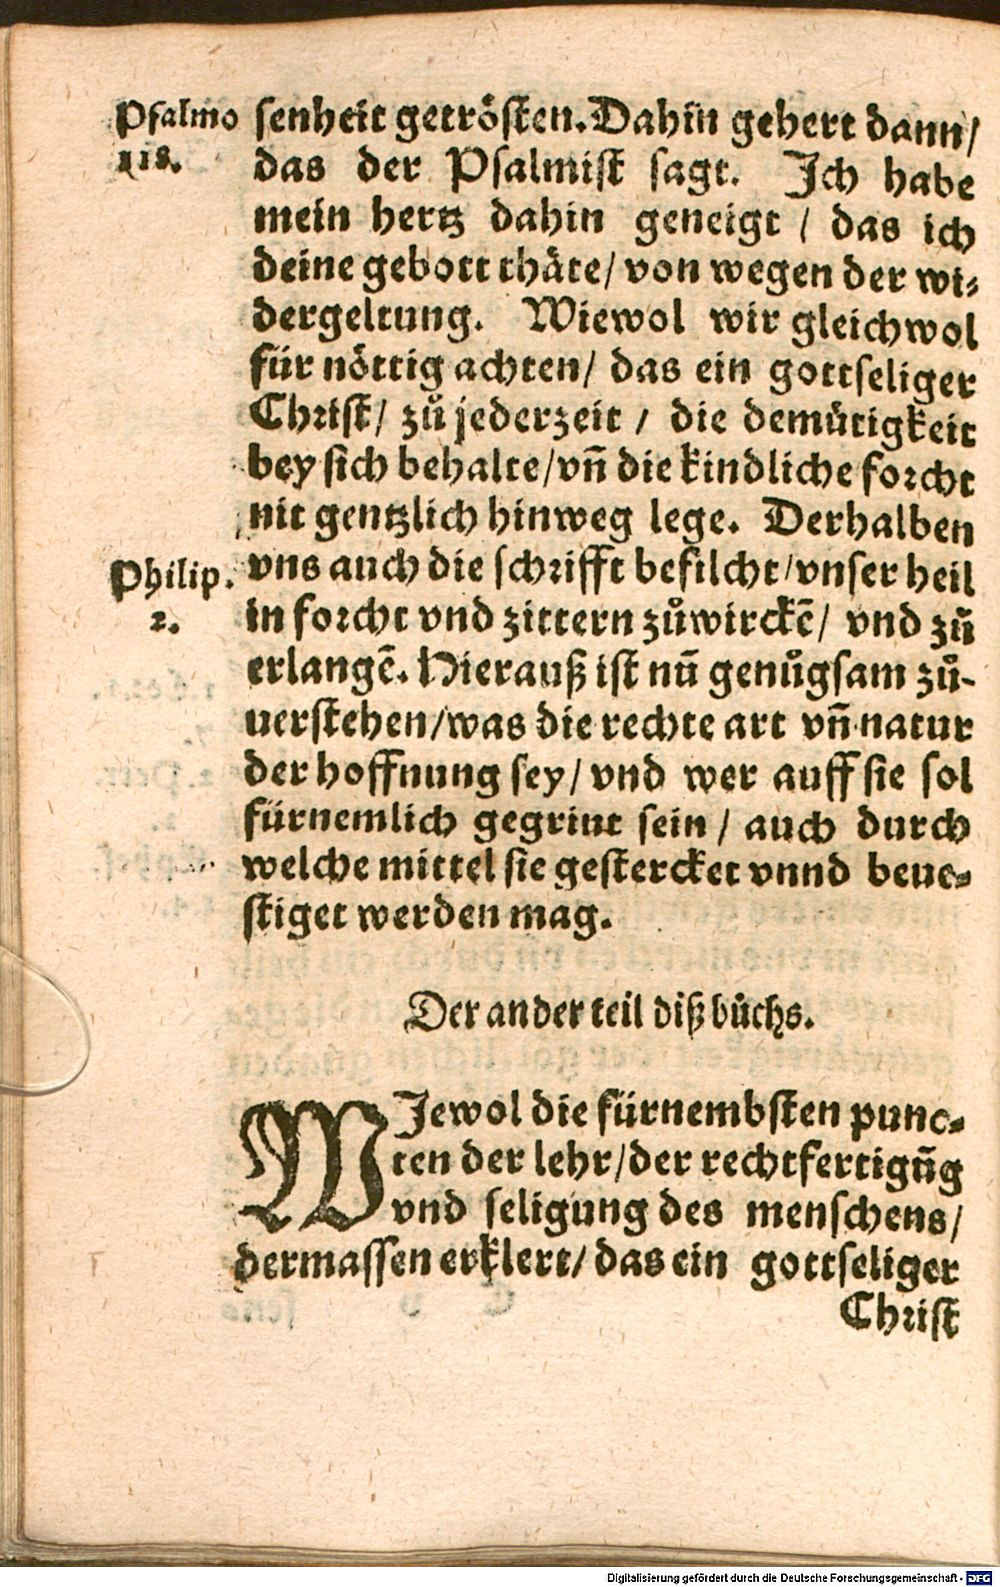 Psalmo
118.
senheit getrösten. Dahin gehert dann/
das der Psalmist sagt. Ich habe
mein hertz dahin geneigt / das ich
deine gebott thäte/ von wegen der wi-
dergeltung. Wiewol wir gleichwol
für nöttig achten/ das ein gottseliger
Christ/ zů jederzeit / die demütigkeit
bey sich behalte/ vñ die kindliche forcht
nit gentzlich hinweg lege. Derhalben
Philip.
2.
vns auch die schrifft befilcht/ vnser heil
in forcht vnd zittern zůwirckẽ/ vnd zů
erlangẽ. Hierauß ist nũ genůgsam zů-
uerstehen/ was die rechte art vñ natur
der hoffnung sey/ vnd wer auff sie sol
fürnemlich gegrint sein / auch durch
welche mittel sie gestercket vnnd beue-
stiget werden mag.
Der ander teil diß bůchs.
WIewol die fürnembsten punc-
ten der lehr/ der rechtfertigũg
vnd seligung des menschens/
dermassen erklert/ das ein gottseliger
Christ
Digitalisierung gefördert durch die Deutsche Forschungsgemeinschaft - DFG